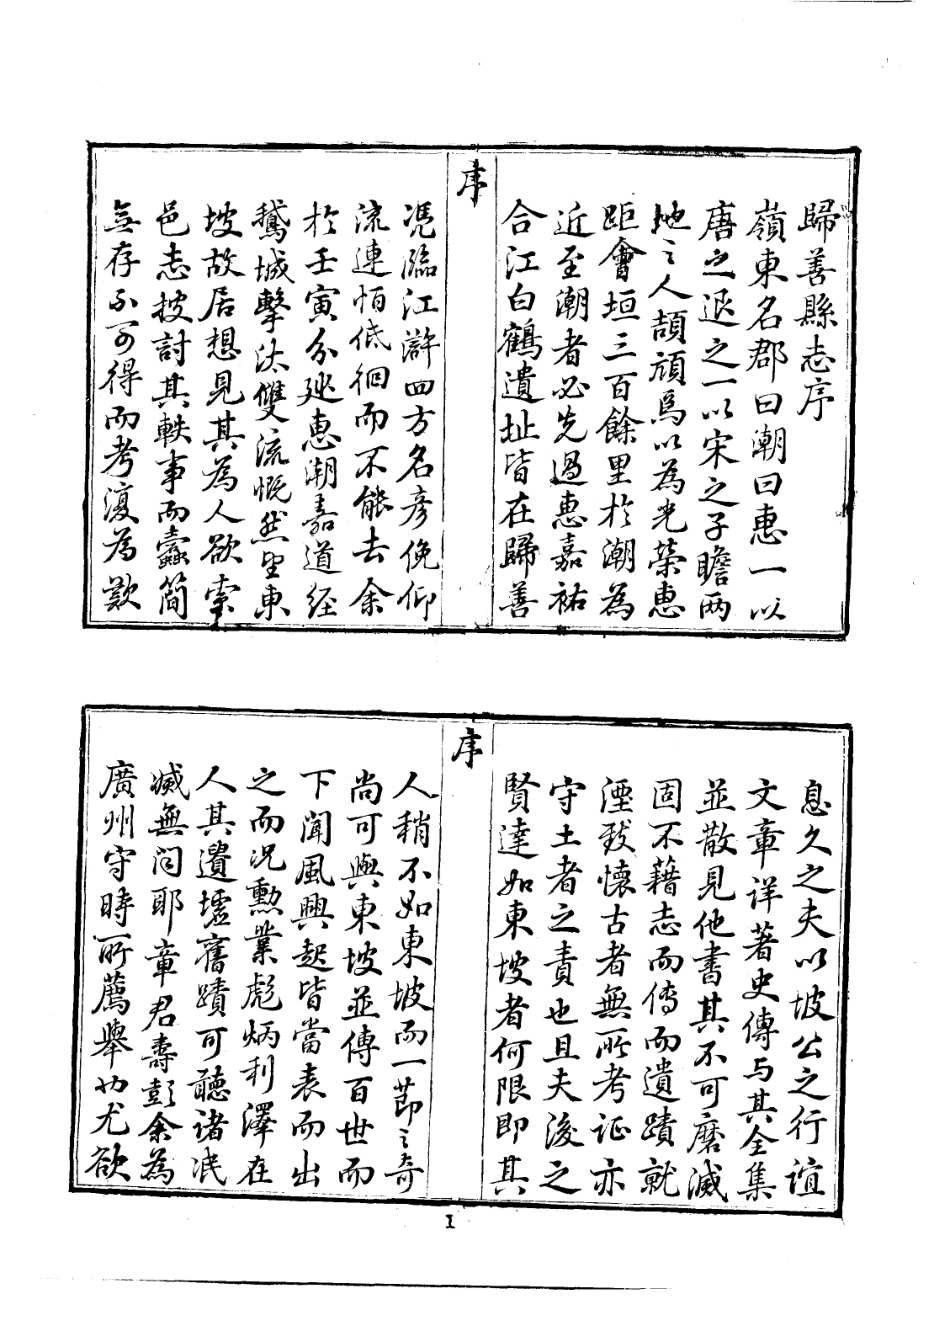 歸善縣志序
嶺東名郡曰潮曰惠一以
唐之退之一以宋之子瞻兩
地之人頡頏焉以為光榮惠
距會垣三百餘里於潮為
近至潮者必先過惠嘉祐
合江白鶴遺址皆在歸善
序
凭臨江滸四方名彥俛仰
流連怕低徊而不能去余
於壬寅分巡惠潮嘉道經
鵝城擊汰雙流慨然望東
坡故居想見其為人欲索
邑志披討其軼事而蠹簡
無存不可得而考復為歎
息久之夫以坡公之行誼
文章详著史傳与其全集
並散見他書其不可磨滅
固不藉志而傳而遺蹟就
湮致懷古者無所考证亦
守土者之責也且夫後之
賢達如東坡者何限即其
序
人稍不如東坡而一節之奇
尚可與東坡並傳百世而
下聞風興起皆當表而出
之而况勳業彪炳利澤在
人其遺墟舊蹟可聽諸泯
滅無闻耶章君壽彭余為
廣州守時所薦舉也尤欲
1